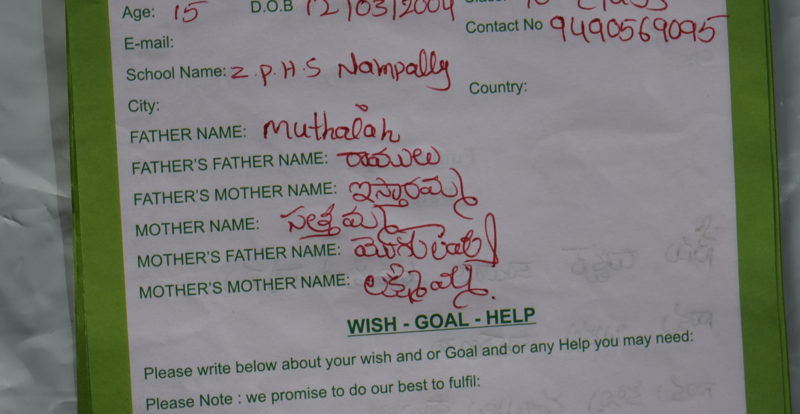 Age: 15 D.O.B 12/03/2004
Contact No 9490569095
E-mail:
School Name: Z.P.H.S Nampally
Country:
City:
FATHER NAME: Muthaiah
FATHER'S FATHER NAME: రాములు
FATHER'S MOTHER NAME: ఇస్తారమ్మ
MOTHER NAME: సత్తమ్మ
MOTHER'S FATHER NAME:
MOTHER'S MOTHER NAME: లక్ష్మమ్మ.
WISH - GOAL - HELP
Please write below about your wish and or Goal and or any Help you may need:
Please Note : we promise to do our best to fulfil: